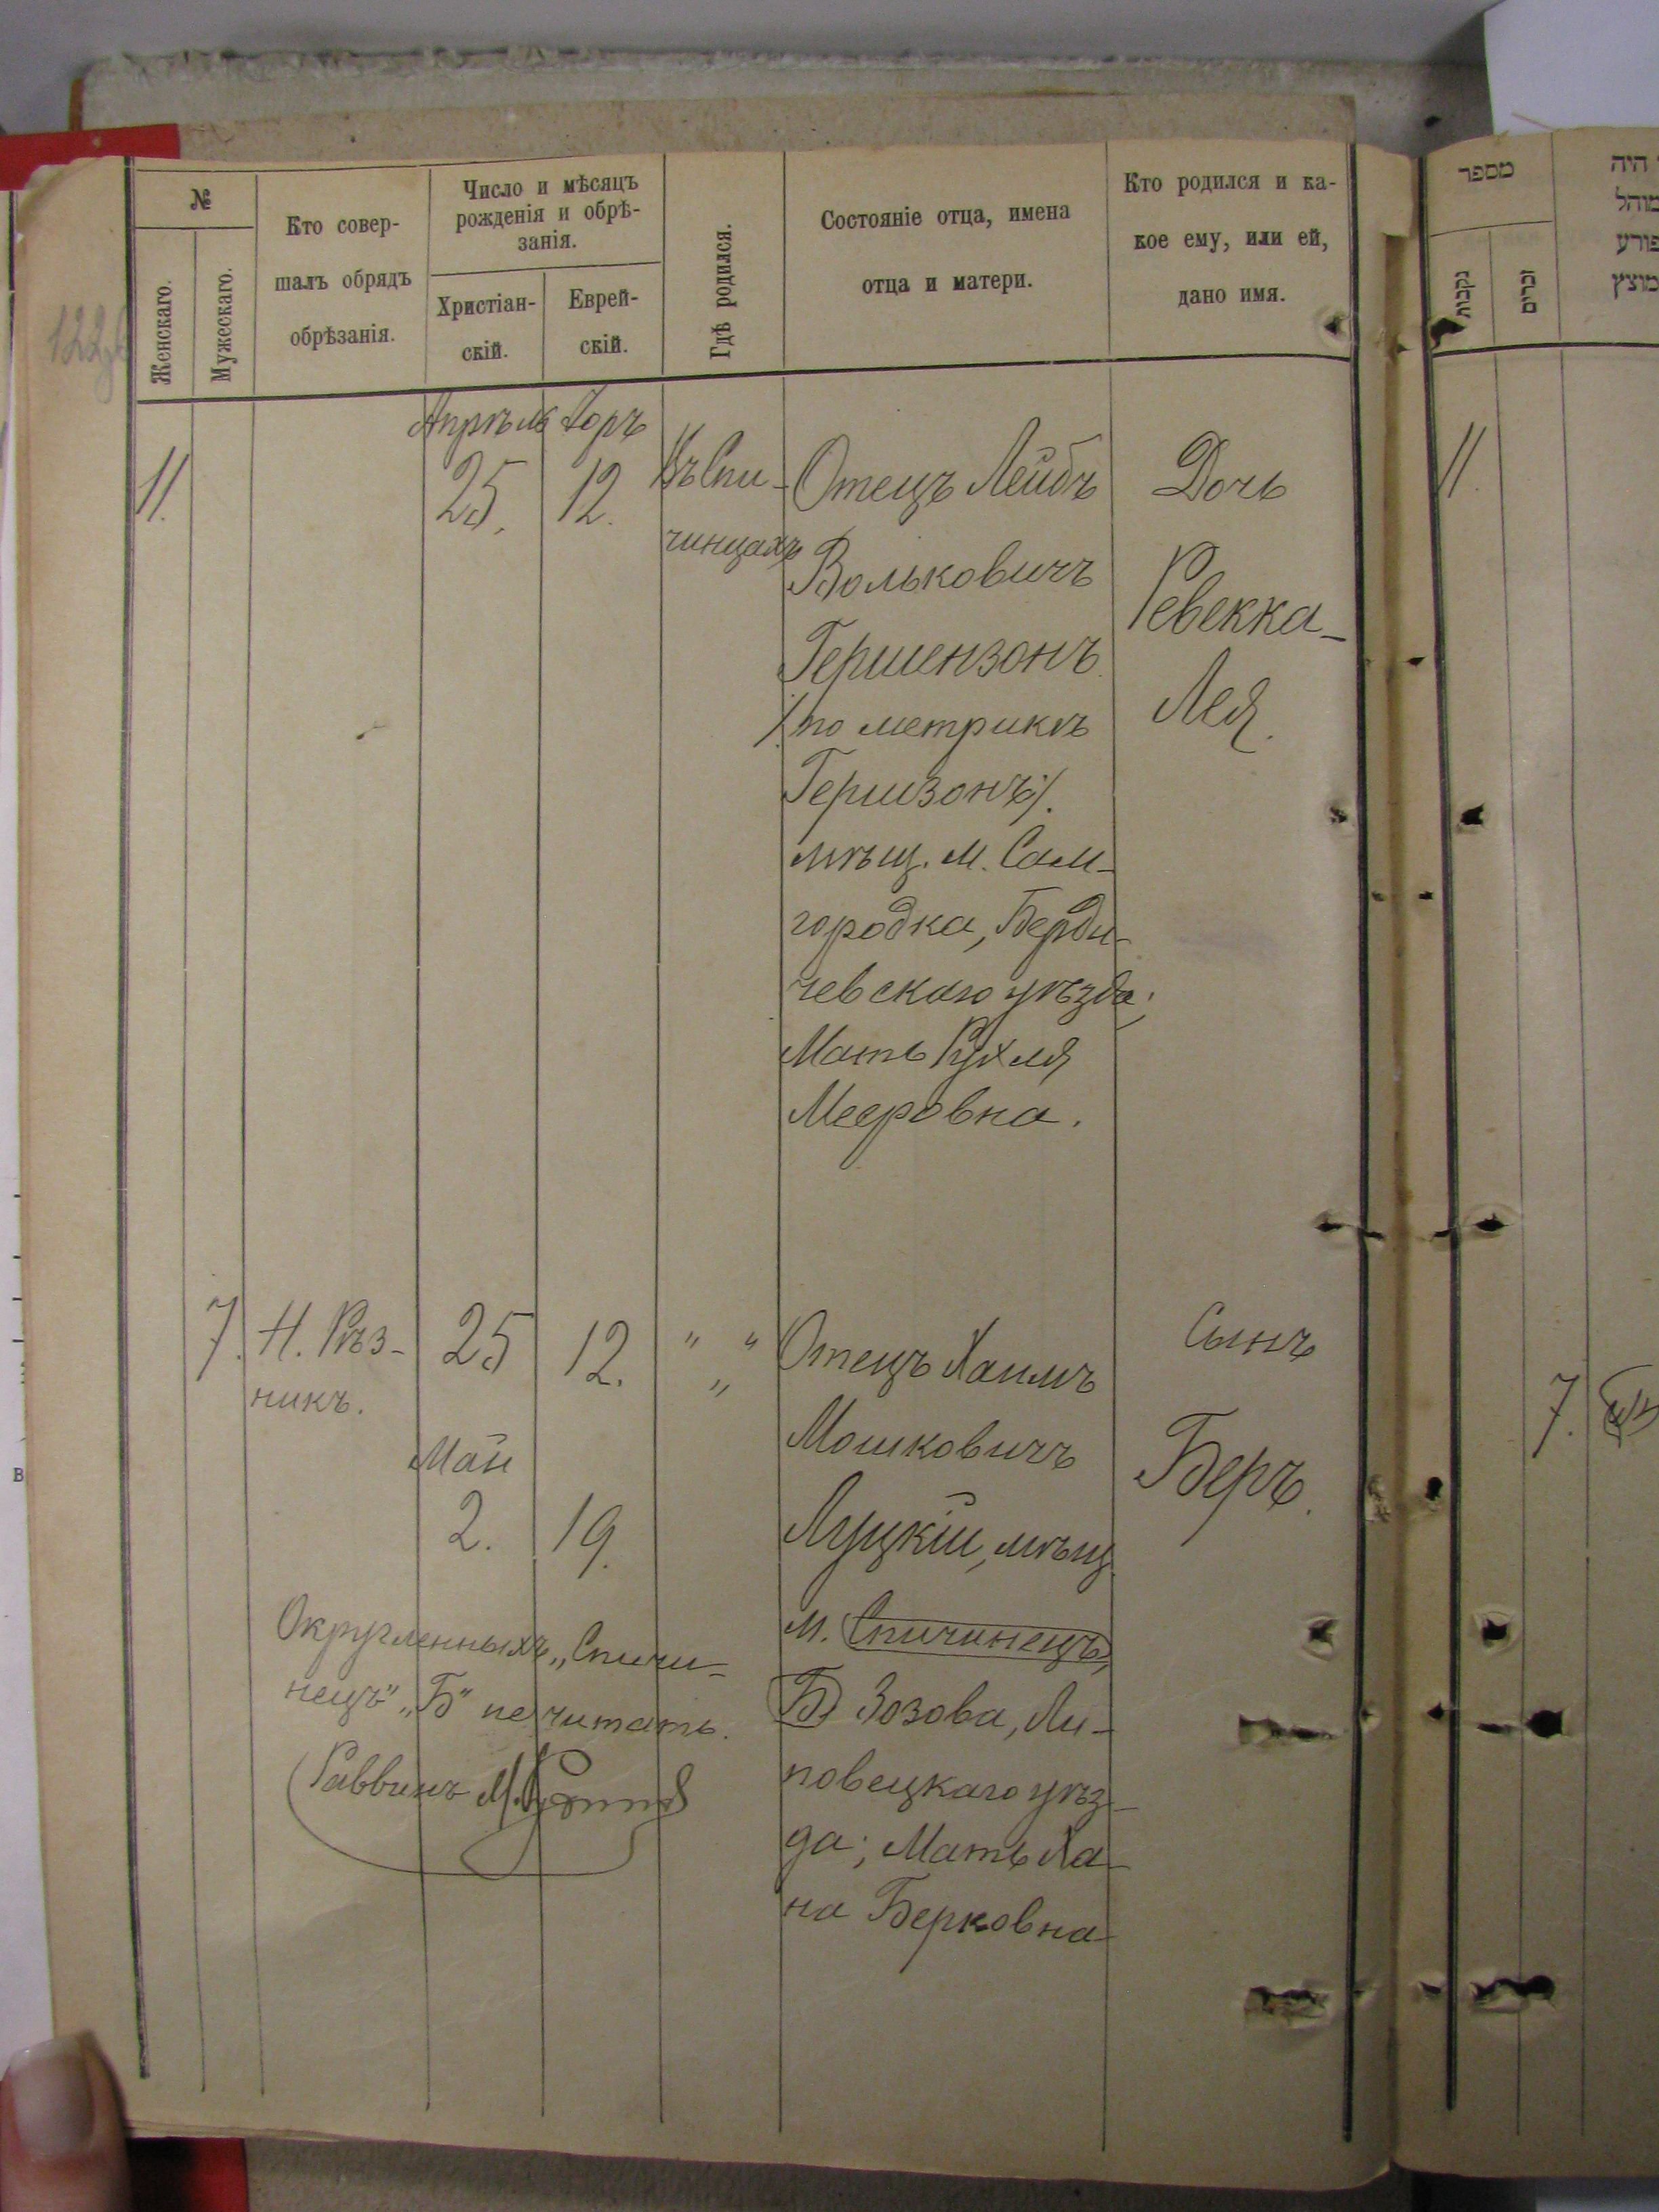 №
Женскаго.
Мужескаго.
Кто совер-
шалъ обрядъ
обрѣзанія.
Число и мѣсяцъ
рожденія и обрѣ-
занія.
Христіан-
скій.
Еврей-
скій.
Гдѣ родился.
Состояніе отца, имена
отца и матери.
Кто родился и ка-
кое ему, или ей,
дано имя.
Апрѣль
11.
25.
12.
Въ Спи-
чинцахъ
Отецъ Лейбъ
Вольковичъ
Гершензонъ
/:по метрикѣ
Гершзонъ:/.
мѣщ. м. Сам-
городка, Берди-
чевскаго уѣзда;
Мать Рухля
Мееровна.
Дочь
Ревекка-
Лея.
7.
Н. Рѣз-
никъ.
25
12.
" "
"
Май
2.
19.
Отецъ Хаимъ
Мошковичъ
Луцкій, мѣщ
м. Спичинецъ,
Б) Зозова, Ли-
повецкаго уѣз-
да; Мать Ха-
на Берковна
Сынъ
Беръ.
Округленныхъ „Спичи-
нецъ" „Б" не читать.
Раввинъ М.
מספר
נקבות
זכרים
היה
מוהל
פורע
מוצץ
11.
7.